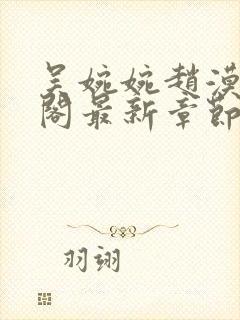 吴婉婉趙漠
閣最新章節
羽翊